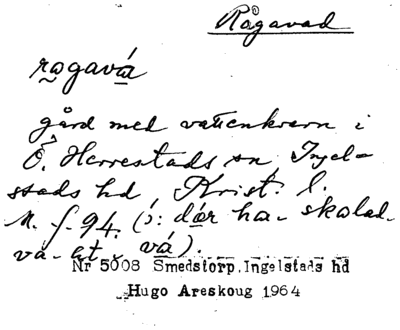 Rågavad
rågavá
gård med vattenkvarn i
Ö. Herrestads sn, Ingel-
stads hd, Krist. l.
M. f. 94. (ɔ: där ha- skalad-
va- et- vá).
Nr 5008 Smedstorp, Ingelstads hd
Hugo Areskoug 1964